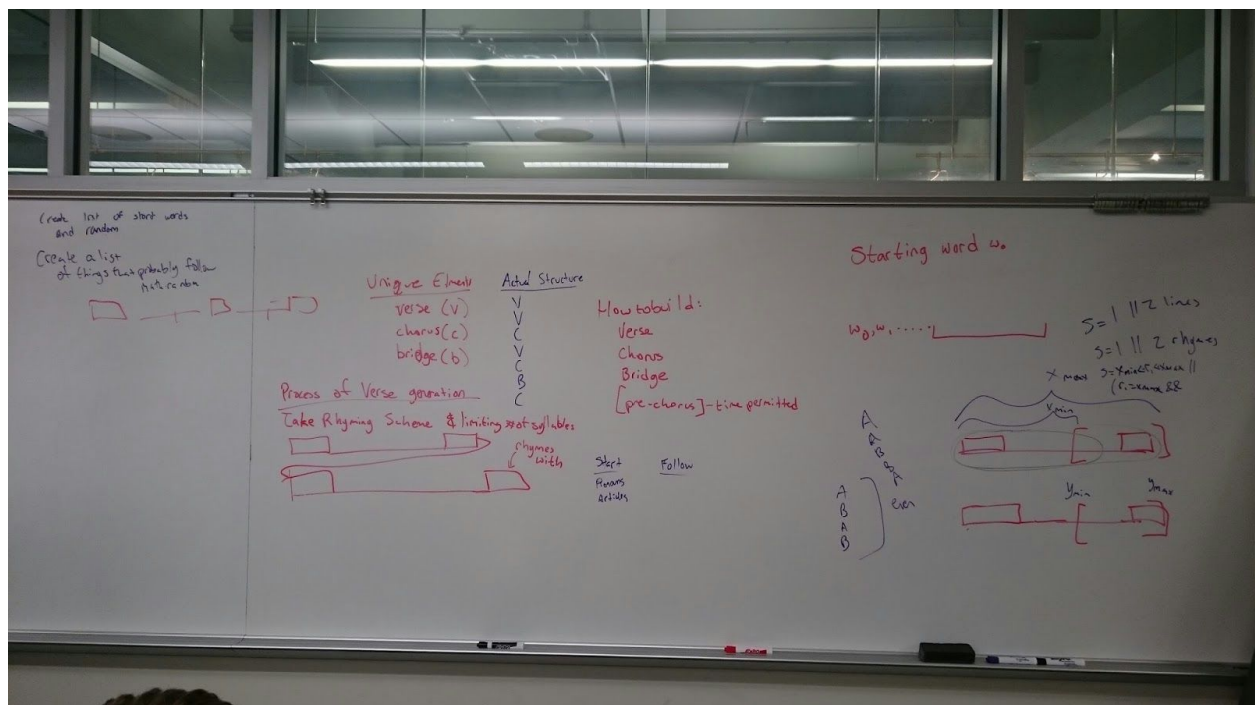 Create list of start words
and random
Create a list
of things that probably follow
Math random
Unique Elments
verse (v)
chorus (c)
bridge (b)
Actual Structure
V
V
C
V
C
B
C
How to build:
Verse
Chorus
Bridge
[pre-chorus] - time permitted
Process of Verse generation
Take Rhyming Scheme & limiting # of syllables
rhymes
with
Start
Articles
Follow
Starting word w₀
w₀, w₁ ......
S=1 || 2 lines
S=1 || 2 rhymes
x max
x min
A
A
B
B
A
A
B
A
B
even
y min
y max